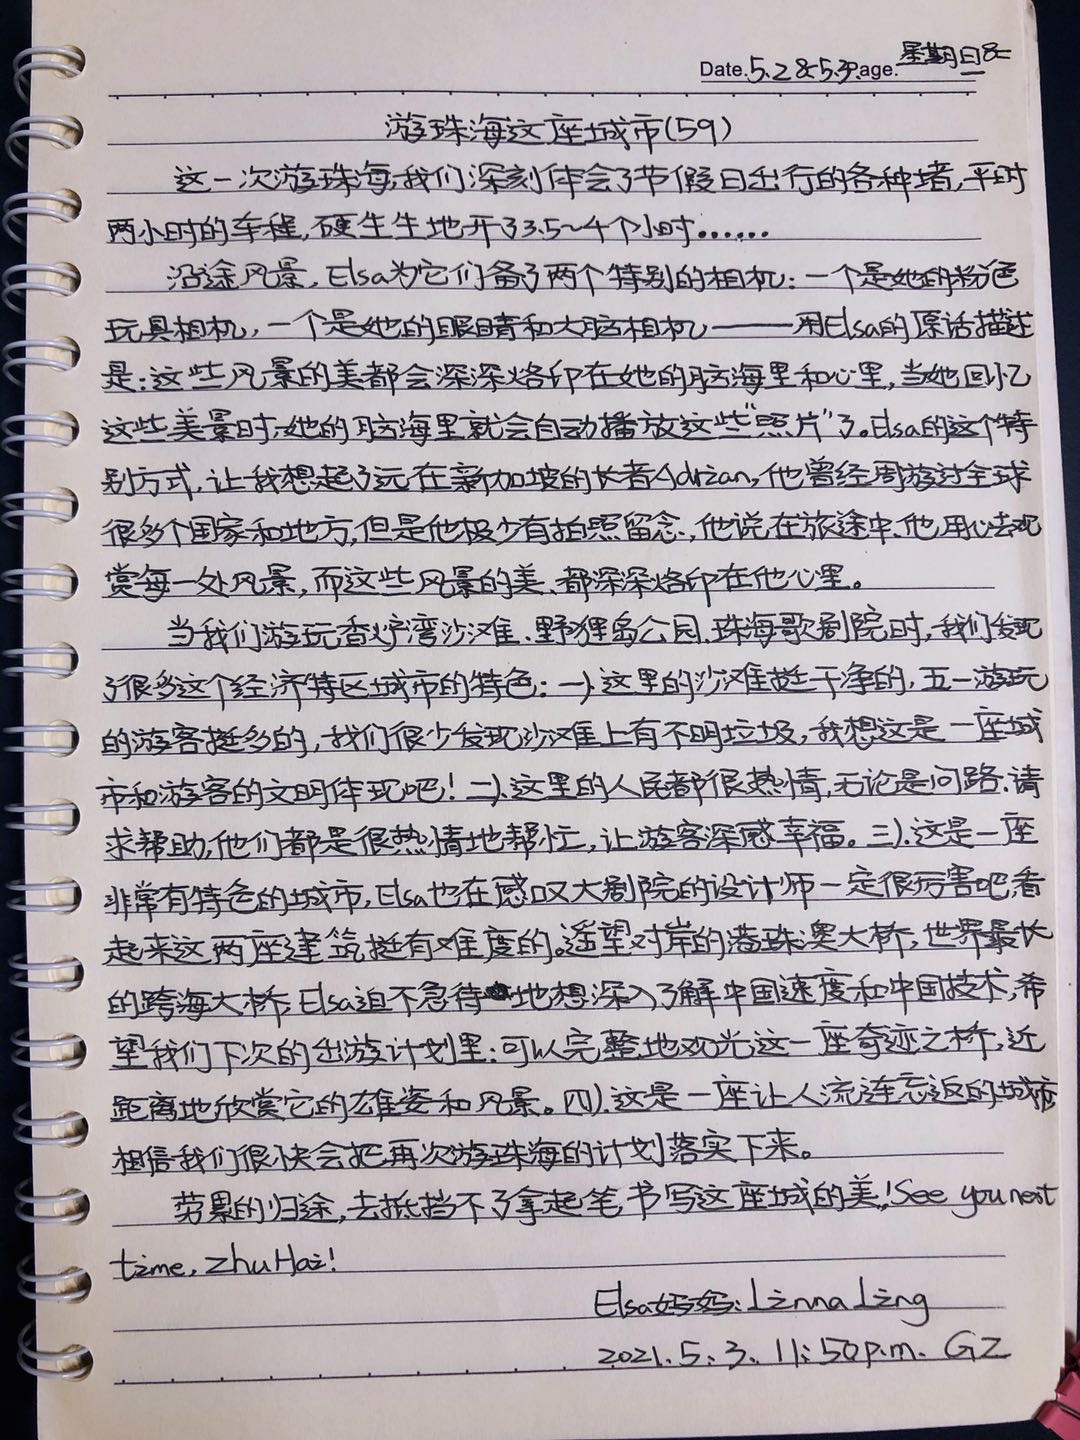 Date. 5.2&5.3 Page. 星期日&一
游珠海这座城市(59)
这一次游珠海,我们深刻体会了节假日出行的各种堵,平时
两小时的车程,硬生生地开了3.5~4个小时……
沿途风景,Elsa为它们备了两个特别的相机:一个是她的粉色
玩具相机,一个是她的眼睛和大脑相机——用Elsa的原话描述
是:这些风景的美都会深深烙印在她的脑海里和心里,当她回忆
这些美景时,她的脑海里就会自动播放这些“照片”了。Elsa的这个特
别方式,让我想起了远在新加坡的长者Adrian,他曾经周游过全球
很多个国家和地方,但是他极少有拍照留念,他说在旅途中、他用心去观
赏每一处风景,而这些风景的美、都深深烙印在他心里。
当我们游玩香炉湾沙滩、野狸岛公园、珠海歌剧院时,我们发现
了很多这个经济特区城市的特色:一).这里的沙滩挺干净的,五一游玩
的游客挺多的,我们很少发现沙滩上有不明垃圾,我想这是一座城
市和游客的文明体现吧!二).这里的人民都很热情,无论是问路、请
求帮助,他们都是很热情地帮忙,让游客深感幸福。三).这是一座
非常有特色的城市,Elsa也在感叹大剧院的设计师一定很厉害吧,看
起来这两座建筑挺有难度的。遥望对岸的港珠澳大桥,世界最长
的跨海大桥,Elsa迫不急待地想深入了解中国速度和中国技术,希
望我们下次的出游计划里:可以完整地观光这一座奇迹之桥,近
距离地欣赏它的雄姿和风景。四).这是一座让人流连忘返的城市
相信我们很快会把再次游珠海的计划落实下来。
劳累的归途,去抵挡不了拿起笔书写这座城的美!See you next
time, ZhuHai!
Elsa妈妈:Linna Ling
2021.5.3. 11:50p.m. GZ